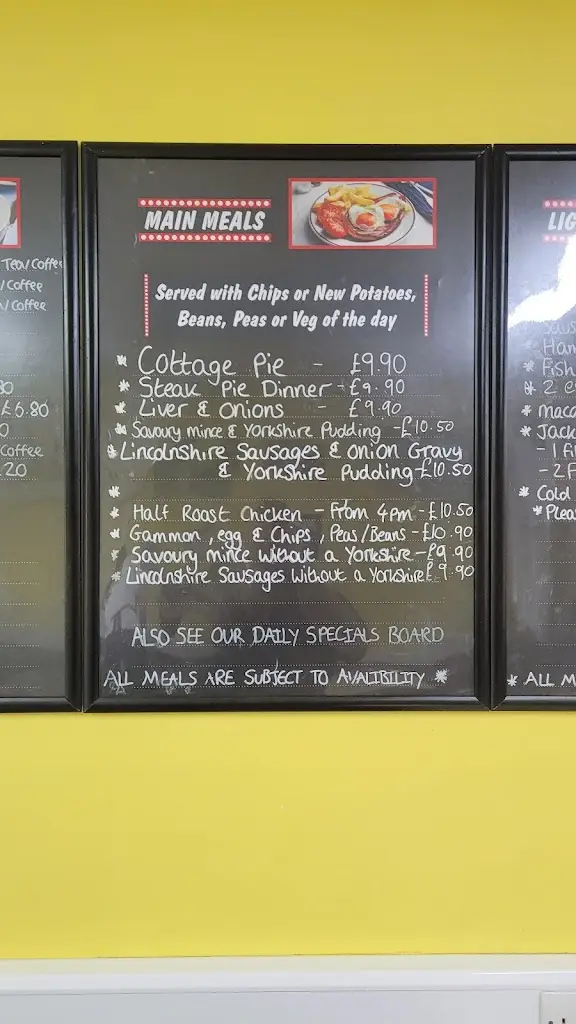 Tea/Coffee
/Coffee
/Coffee
£6.80
Coffee
.20
MAIN MEALS
Served with Chips or New Potatoes,
Beans, Peas or Veg of the day
* Cottage Pie - £9.90
* Steak Pie Dinner - £9.90
* Liver & Onions - £9.90
* Savoury mince & Yorkshire Pudding - £10.50
* Lincolnshire Sausages & onion Gravy
& Yorkshire Pudding - £10.50
*
* Half Roast Chicken - From 4pm - £10.50
* Gammon, egg & Chips, Peas/Beans - £10.90
* Savoury mince without a Yorkshire - £9.90
* Lincolnshire Sausages without a Yorkshire £9.90
ALSO SEE OUR DAILY SPECIALS BOARD
ALL MEALS ARE SUBJECT TO AVALIBILITY *
LIG
* Fish
* 2 e
* maca
* Jack
- 1 Fi
- 2 F
* Cold
* Plea
* ALL M